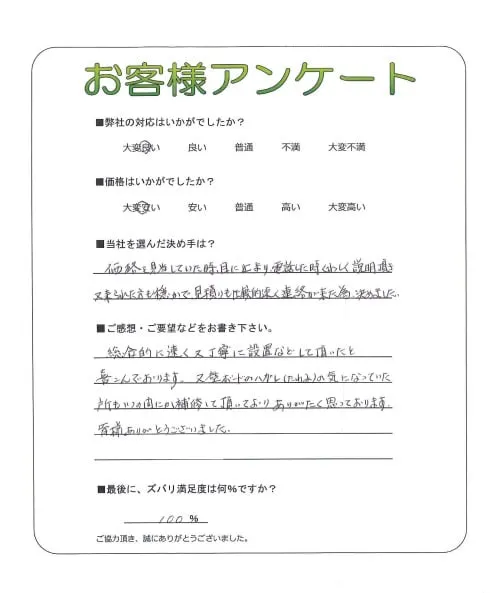 お客様アンケート
■弊社の対応はいかがでしたか？
大変良い 良い 普通 不満 大変不満
■価格はいかがでしたか？
大変安い 安い 普通 高い 大変高い
■当社を選んだ決め手は？
価格を見当していた時、目に止まり電話した時くわしく説明頂き
又来られた方も穏かで、見積りも比較的速く連絡が来た為、決めました。
■ご感想・ご要望などをお書き下さい。
総合的に速く又丁寧に設置などして頂いたと
喜こんでおります。又壁ボードのハガレ(たれみ)の気になっていた
所もいつの間にか補修して頂いており ありがたく思っております。
皆様ありがとうございました。
■最後に、ズバリ満足度は何％ですか？
100 %
ご協力頂き、誠にありがとうございました。